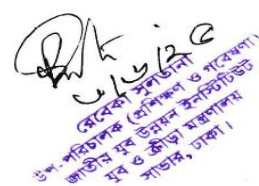 ৩/৮/২৫
রেবেকা সুলতানা
উপ-পরিচালক (প্রশিক্ষণ ও গবেষণা)
জাতীয় যুব উন্নয়ন ইনস্টিটিউট
যুব ও ক্রীড়া মন্ত্রণালয়
সাভার, ঢাকা।